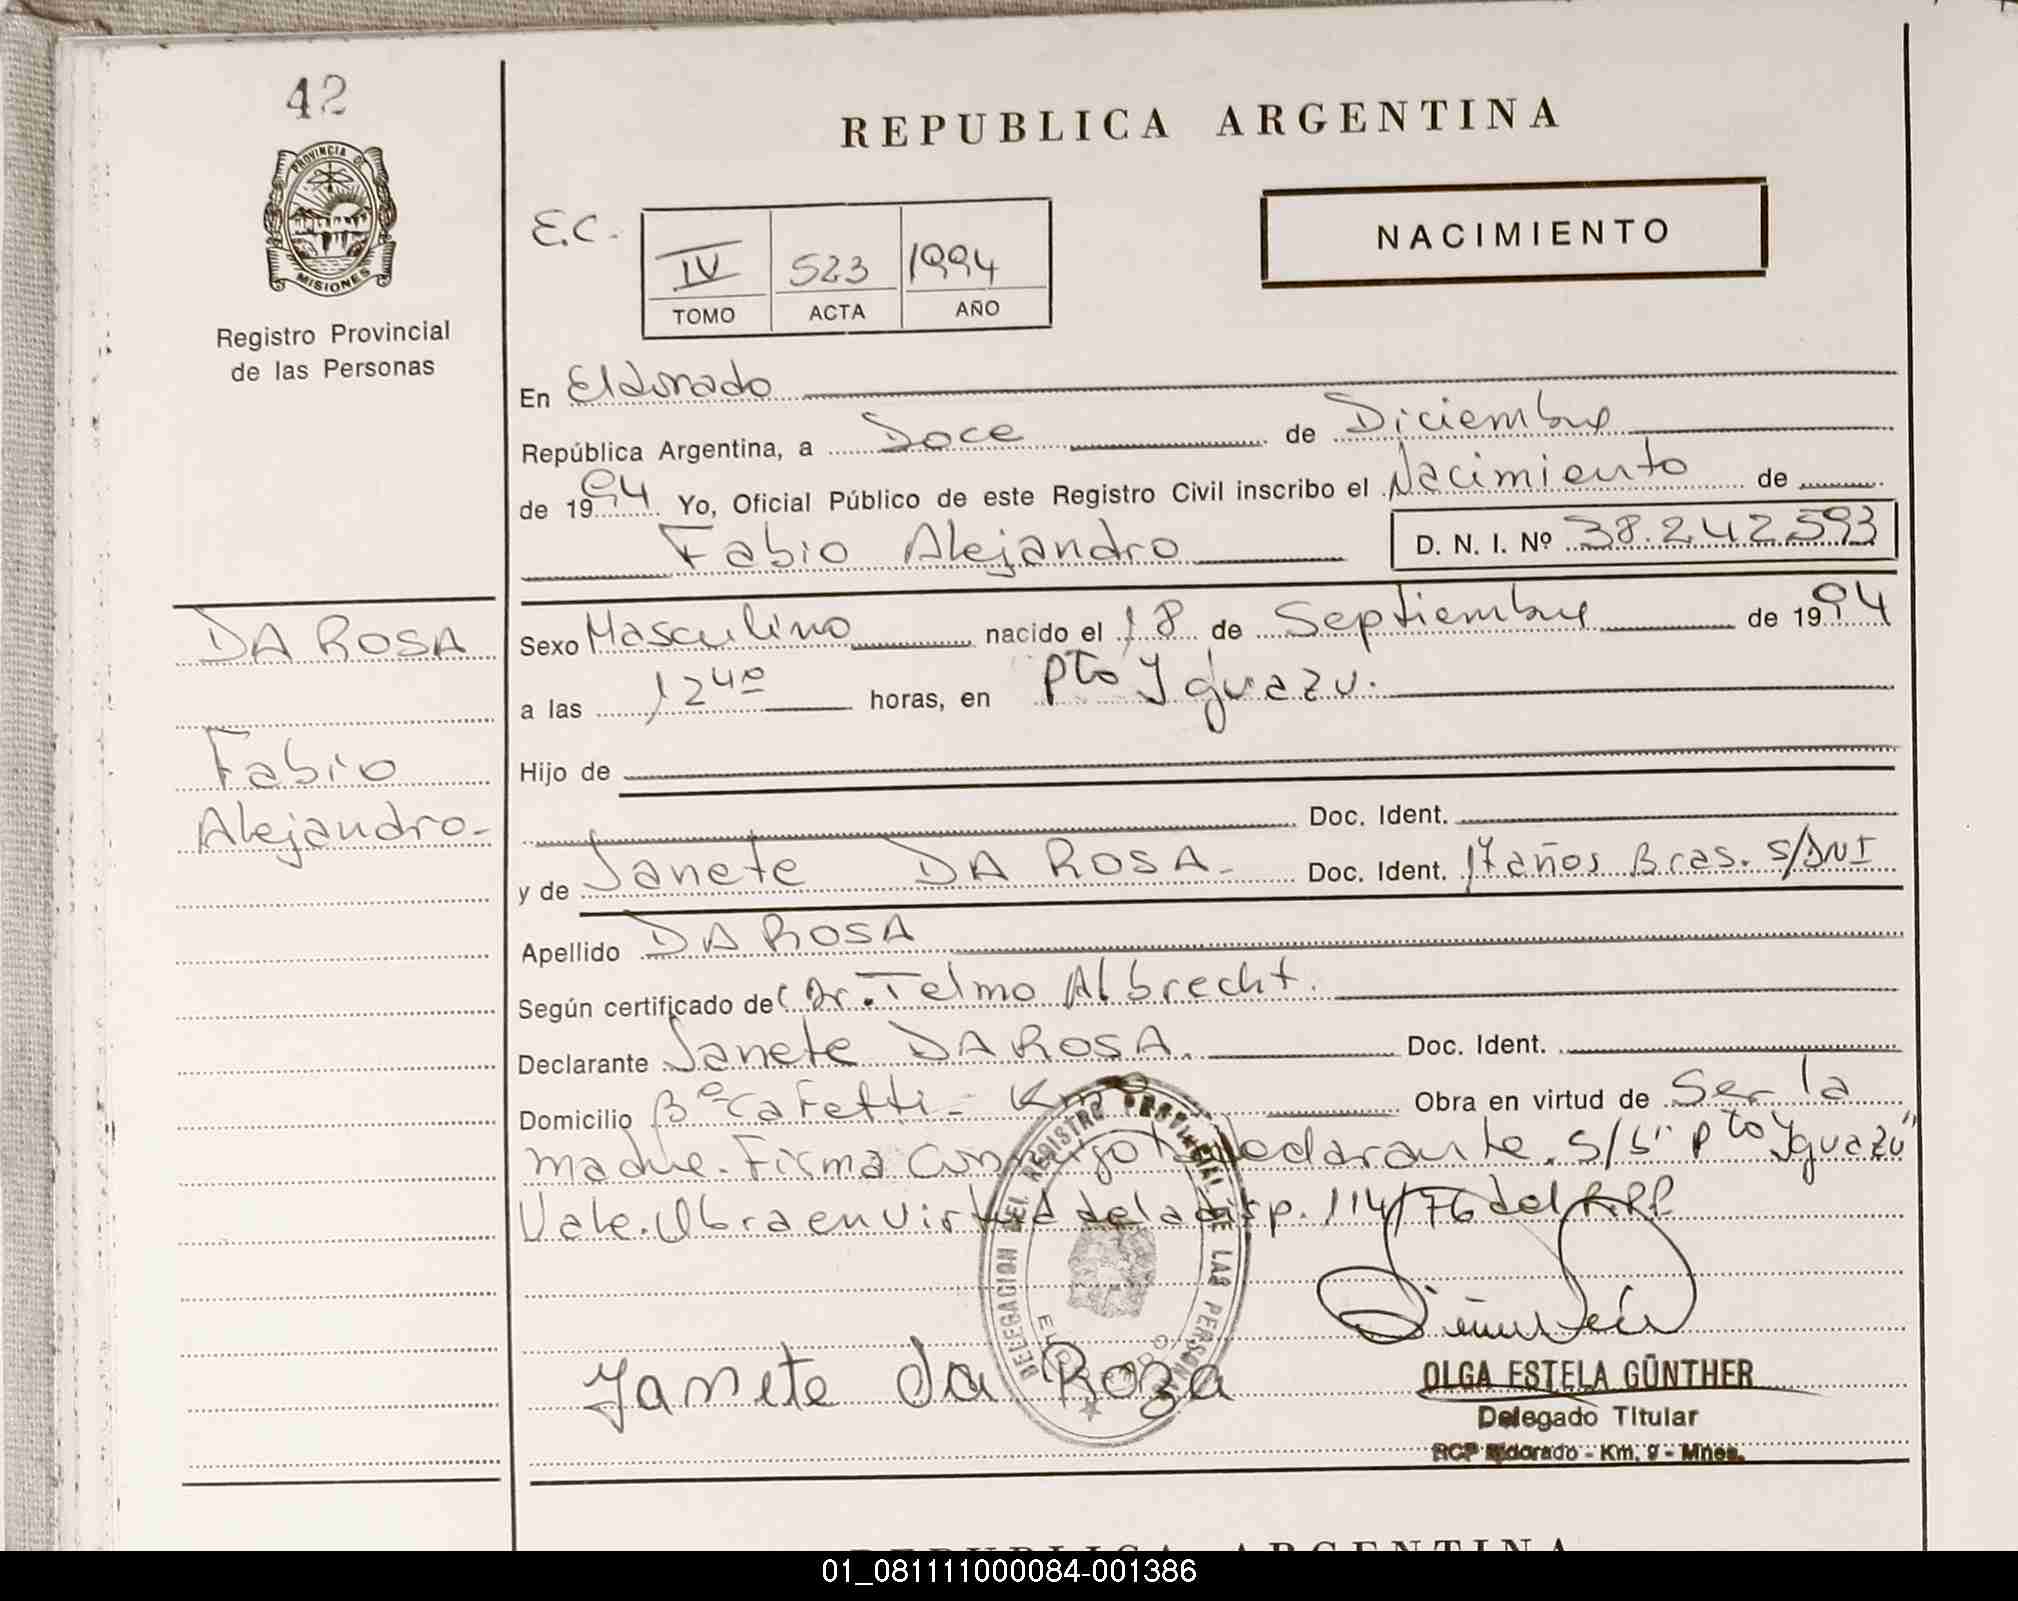 42
PROVINCIA DE
MISIONES
Registro Provincial
de las Personas
DA ROSA
Fabio
Alejandro-
REPUBLICA ARGENTINA
NACIMIENTO
E.C.
IV 523 1994
TOMO ACTA AÑO
En Eldorado
República Argentina, a Doce de Diciembre
de 1994 Yo, Oficial Público de este Registro Civil inscribo el Nacimiento de
Fabio Alejandro D. N. I. Nº 38.242.593
Sexo Masculino nacido el 18 de Septiembre de 1994
a las 12 40 horas, en Pto Yguazu.
Hijo de
Doc. Ident.
y de Janete DA ROSA- Doc. Ident. 17 años Bras. S/DNI
Apellido DA ROSA
Según certificado del Dr. Telmo Albrecht.
Declarante Janete DA ROSA. Doc. Ident.
Domicilio Bº Cafetti- Km 9 Obra en virtud de Ser la
madre. Firma Conmigo la declarante. S/b" Pto Yguazú"
Vale. Obra en virtud de la disp. 114/76 del R.P.P.
DELEGACION DEL REGISTRO PROVINCIAL DE LAS PERSONAS
ELDORADO
Janete da Roza
OLGA ESTELA GÜNTHER
Delegado Titular
RCP Eldorado - Km. 9 - Mnes.
REPUBLICA ARGENTINA
01_081111000084-001386